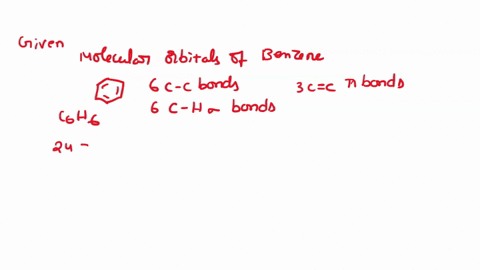 Given
Molecular Orbitals of Benzene
6 C-C bonds 3 C=C π bonds
6 C-H σ bonds
C6H6
24 -